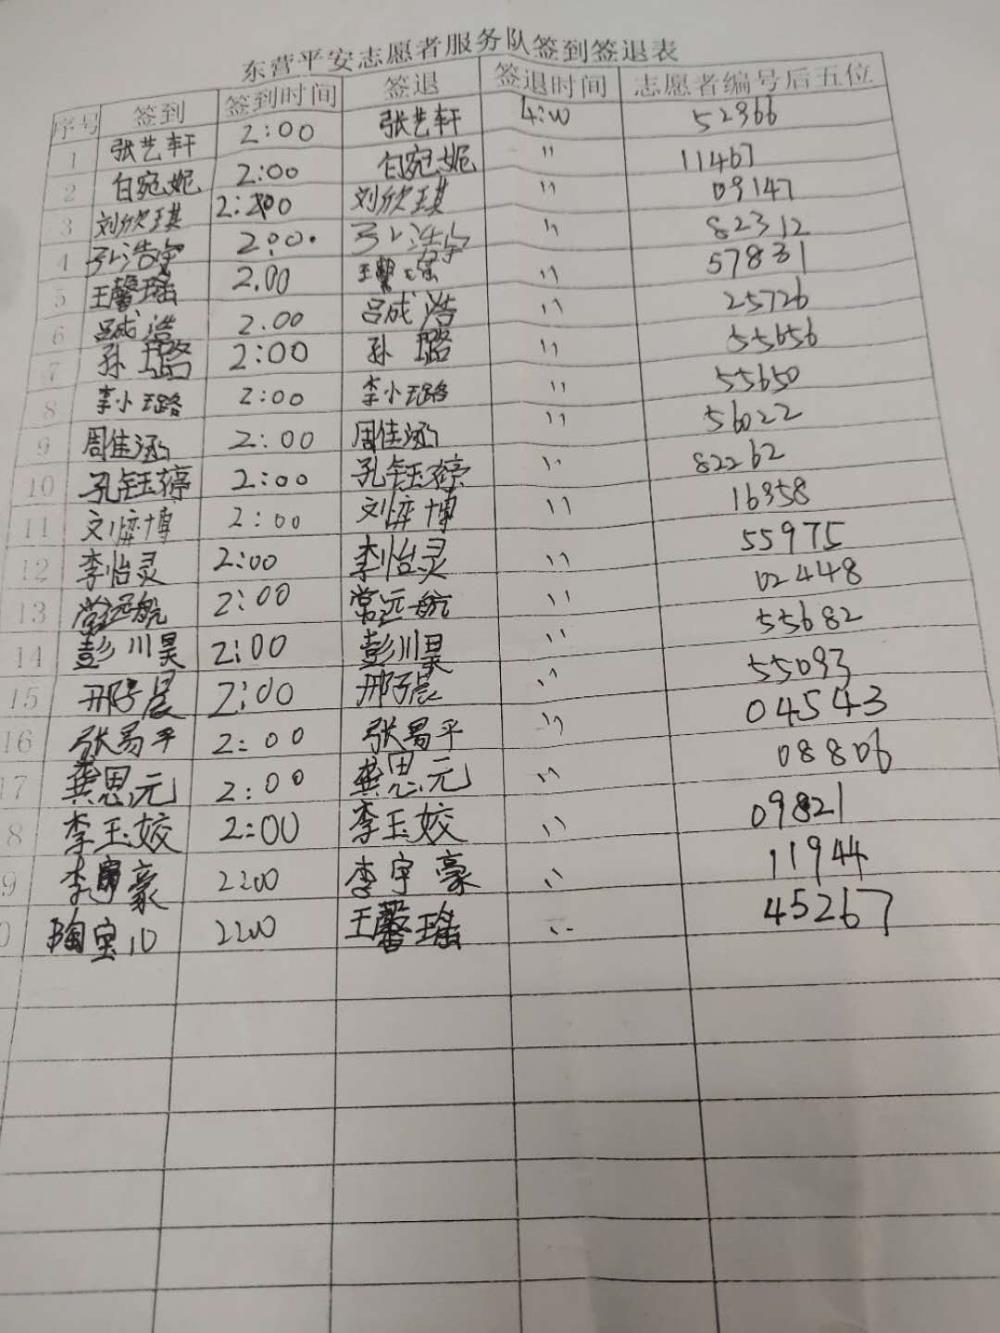 东营平安志愿者服务队签到签退表
序号 签到 签到时间 签退 签退时间 志愿者编号后五位
1 张艺轩 2:00 张艺轩 4:00 52366
2 白宛妮 2:00 白宛妮 〃 11467
3 刘欣琪 2:00 刘欣琪 〃 09147
4 弘浩宇 2:00 〃 82312
5 王馨瑶 2.00 王馨瑶 〃 57831
6 吕成浩 2.00 吕成浩 〃 25726
7 孙璐 2:00 孙璐 〃 55656
8 李小璐 2:00 李小璐 〃 55650
9 周佳涵 2:00 周佳涵 〃 56022
10 孔钰婷 2:00 孔钰婷 〃 82262
11 刘弈博 2:00 刘弈博 〃 16358
12 李怡灵 2:00 李怡灵 〃 55975
13 常远航 2:00 常远航 〃 02448
14 彭川昊 2:00 彭川昊 〃 55682
15 邢子晨 2:00 邢子晨 〃 55093
16 张易平 2:00 张易平 〃 04543
17 龚思元 2:00 龚思元 〃 08806
8 李玉姣 2:00 李玉姣 〃 09821
9 李宇豪 2:00 李宇豪 〃 11944
0 陶宝 2:00 王馨瑶 〃 45267